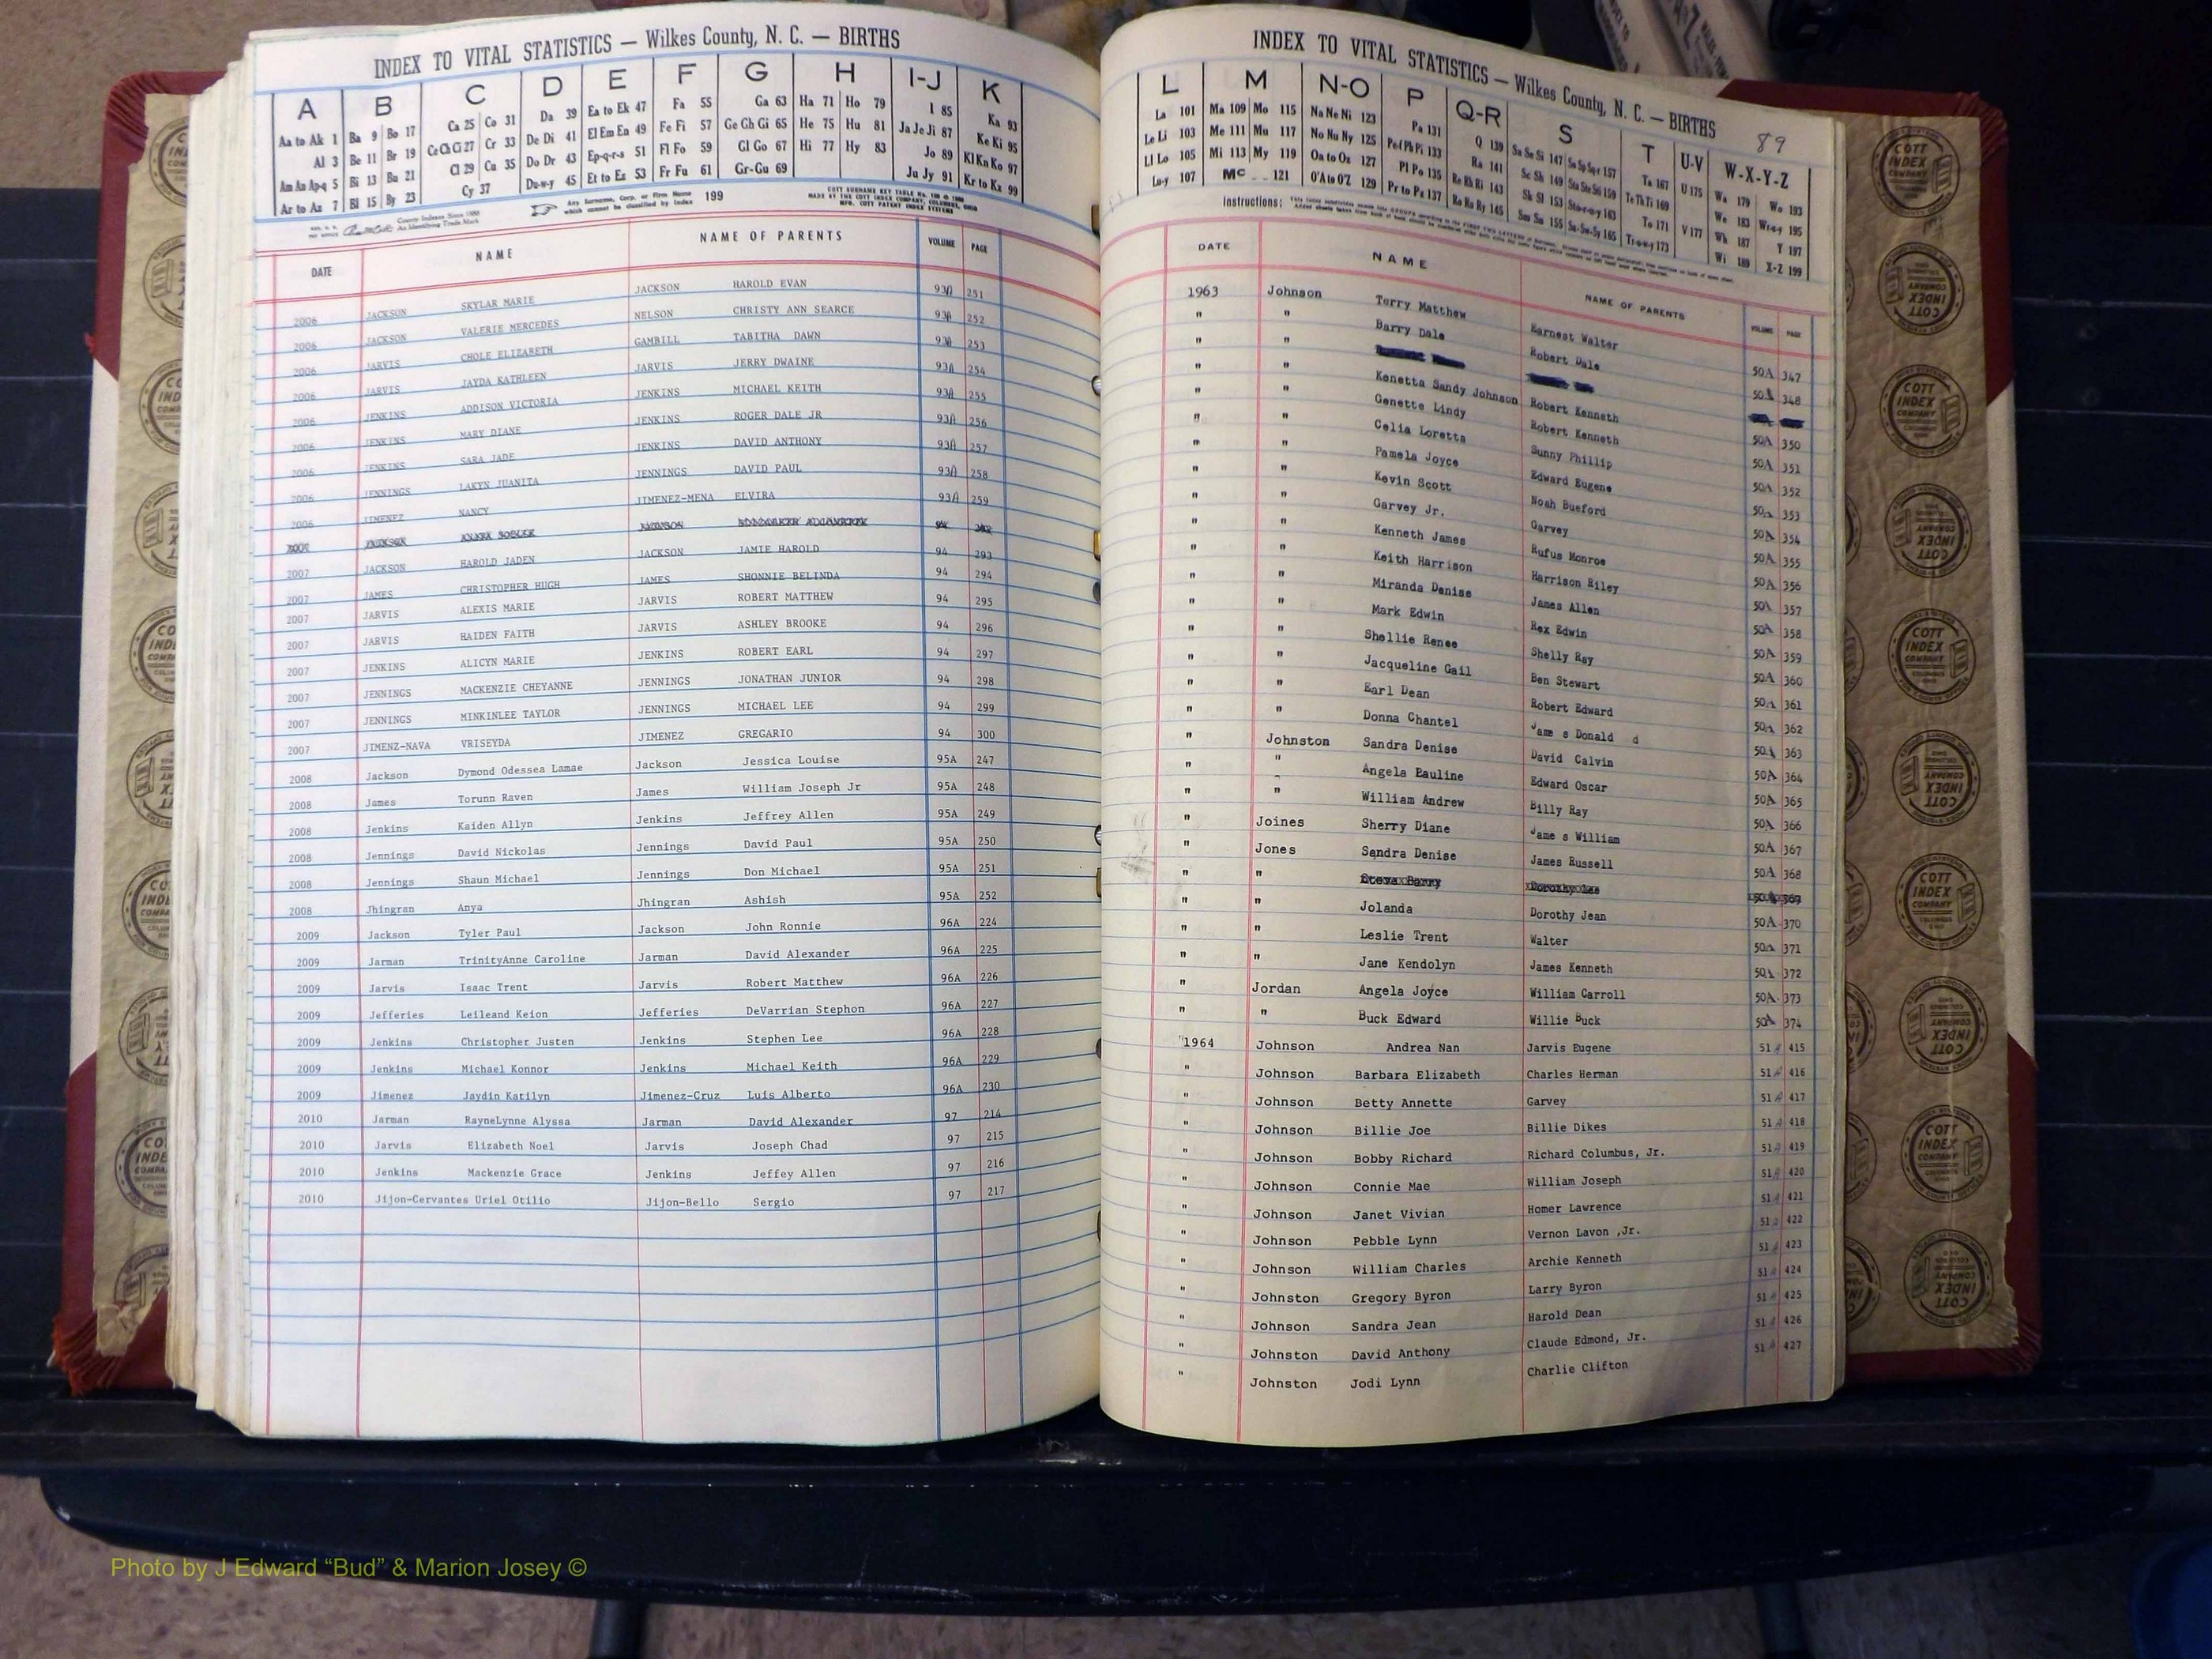 INDEX TO VITAL STATISTICS — Wilkes County, N. C. — BIRTHS
A B C D E F G H I-J K
Aa to Ak 1 Ba 9 Bo 17 Ca 25 Co 31 Da 39 Ea to Ek 47 Fa 55 Ga 63 Ha 71 Ho 79 I 85 Ka 93
Al 3 Be 11 Br 19 Ce Ch Ci 27 Cr 33 De Di 41 El Em En 49 Fe Fi 57 Ge Gh Gi 65 He 75 Hu 81 Ja Je Ji 87 Ke Ki 95
Am An Ap-q 5 Bi 13 Bu 21 Cl 29 Cu 35 Do Dr 43 Ep-q-r-s 51 Fl Fo 59 Gl Go 67 Hi 77 Hy 83 Jo 89 Kl Kn Ko 97
Ar to Az 7 Bl 15 By 23 Cy 37 Du-w-y 45 Et to Ez 53 Fr Fu 61 Gr-Gu 69 Ju Jy 91 Kr to Kz 99
Any Surname, Corp. or Firm Name which cannot be classified by Index 199
DATE NAME NAME OF PARENTS VOLUME PAGE
2006 JACKSON SKYLAR MARIE JACKSON HAROLD EVAN 93A 251
2006 JACKSON VALERIE MERCEDES NELSON CHRISTY ANN SEARCE 93A 252
2006 JARVIS CHOLE ELIZABETH GAMBILL TABITHA DAWN 93A 253
2006 JARVIS JAYDA KATHLEEN JARVIS JERRY DWAINE 93A 254
2006 JENKINS ADDISON VICTORIA JENKINS MICHAEL KEITH 93A 255
2006 JENKINS MARY DIANE JENKINS ROGER DALE JR 93A 256
2006 JENKINS SARA JADE JENKINS DAVID ANTHONY 93A 257
2006 JENNINGS LAKYN JUANITA JENNINGS DAVID PAUL 93A 258
2006 JIMENEZ NANCY JIMENEZ-MENA ELVIRA 93A 259
2007 JACKSON HAROLD JADEN JACKSON JAMIE HAROLD 94 293
2007 JAMES CHRISTOPHER HUGH JAMES SHONNIE BELINDA 94 294
2007 JARVIS ALEXIS MARIE JARVIS ROBERT MATTHEW 94 295
2007 JARVIS HAIDEN FAITH JARVIS ASHLEY BROOKE 94 296
2007 JENKINS ALICYN MARIE JENKINS ROBERT EARL 94 297
2007 JENNINGS MACKENZIE CHEYANNE JENNINGS JONATHAN JUNIOR 94 298
2007 JENNINGS MINKINLEE TAYLOR JENNINGS MICHAEL LEE 94 299
2007 JIMENZ-NAVA VRISEYDA JIMENEZ GREGARIO 94 300
2008 Jackson Dymond Odessea Lamae Jackson Jessica Louise 95A 247
2008 James Torunn Raven James William Joseph Jr 95A 248
2008 Jenkins Kaiden Allyn Jenkins Jeffrey Allen 95A 249
2008 Jennings David Nickolas Jennings David Paul 95A 250
2008 Jennings Shaun Michael Jennings Don Michael 95A 251
2008 Jhingran Anya Jhingran Ashish 95A 252
2009 Jackson Tyler Paul Jackson John Ronnie 96A 224
2009 Jarman TrinityAnne Caroline Jarman David Alexander 96A 225
2009 Jarvis Isaac Trent Jarvis Robert Matthew 96A 226
2009 Jefferies Leileand Keion Jefferies DeVarrian Stephon 96A 227
2009 Jenkins Christopher Justen Jenkins Stephen Lee 96A 228
2009 Jenkins Michael Konnor Jenkins Michael Keith 96A 229
2009 Jimenez Jaydin Katilyn Jimenez-Cruz Luis Alberto 96A 230
2010 Jarman RayneLynne Alyssa Jarman David Alexander 97 214
2010 Jarvis Elizabeth Noel Jarvis Joseph Chad 97 215
2010 Jenkins Mackenzie Grace Jenkins Jeffey Allen 97 216
2010 Jijon-Cervantes Uriel Otilio Jijon-Bello Sergio 97 217
INDEX TO VITAL STATISTICS — Wilkes County, N. C. — BIRTHS
89
L M N-O P Q-R S T U-V W-X-Y-Z
La 101 Ma 109 Mo 115 Na Ne Ni 123 Pa 131 Q 139 Sa Se Si 147 Ta 167 U 175 Wa 179 Wo 193
Le Li 103 Me 111 Mu 117 No Nu Ny 125 Pe-f Ph Pi 133 Ra 141 Sc Sh 149 Te Th Ti 169 V 177 We 183 Wr-u-y 195
Ll Lo 105 Mi 113 My 119 Oa to Oz 127 Pl Po 135 Re Rh Ri 143 Sk Sl 153 To 171 Wh 187 Y 197
Lu-y 107 Mc 121 O'A to O'Z 129 Pr to Ps 137 Ro Ru Ry 145 Sm Sn 155 Su-Sw-Sy 165 Tr-u-w-y 173 Wi 189 X-Z 199
Instructions:
DATE NAME NAME OF PARENTS VOLUME PAGE
1963 Johnson Terry Matthew Earnest Walter 50A 347
" " Barry Dale Robert Dale 50A 348
" "
" " Kenetta Sandy Johnson Robert Kenneth 50A 350
" " Genette Lindy Robert Kenneth 50A 351
" " Celia Loretta Sunny Phillip 50A 352
" " Pamela Joyce Edward Eugene 50A 353
" " Kevin Scott Noah Bueford 50A 354
" " Garvey Jr. Garvey 50A 355
" " Kenneth James Rufus Monroe 50A 356
" " Keith Harrison Harrison Riley 50A 357
" " Miranda Denise James Allen 50A 358
" " Mark Edwin Rex Edwin 50A 359
" " Shellie Renee Shelly Ray 50A 360
" " Jacqueline Gail Ben Stewart 50A 361
" " Earl Dean Robert Edward 50A 362
" " Donna Chantel Jame s Donald d 50A 363
" Johnston Sandra Denise David Calvin 50A 364
" " Angela Pauline Edward Oscar 50A 365
" " William Andrew Billy Ray 50A 366
" Joines Sherry Diane Jame s William 50A 367
" Jones Sandra Denise James Russell 50A 368
" " Steve Barry Dorothy Lee 50A 369
" " Jolanda Dorothy Jean 50A 370
" " Leslie Trent Walter 50A 371
" " Jane Kendolyn James Kenneth 50A 372
" Jordan Angela Joyce William Carroll 50A 373
" " Buck Edward Willie Buck 50A 374
"1964 Johnson Andrea Nan Jarvis Eugene 51A 415
" Johnson Barbara Elizabeth Charles Herman 51A 416
Johnson Betty Annette Garvey 51A 417
" Johnson Billie Joe Billie Dikes 51A 418
" Johnson Bobby Richard Richard Columbus, Jr. 51A 419
" Johnson Connie Mae William Joseph 51A 420
" Johnson Janet Vivian Homer Lawrence 51A 421
" Johnson Pebble Lynn Vernon Lavon ,Jr. 51A 422
" Johnson William Charles Archie Kenneth 51A 423
" Johnston Gregory Byron Larry Byron 51A 424
" Johnson Sandra Jean Harold Dean 51A 425
" Johnston David Anthony Claude Edmond, Jr. 51A 426
" Johnston Jodi Lynn Charlie Clifton 51A 427
COTT INDEX COMPANY
Photo by J Edward “Bud” & Marion Josey ©